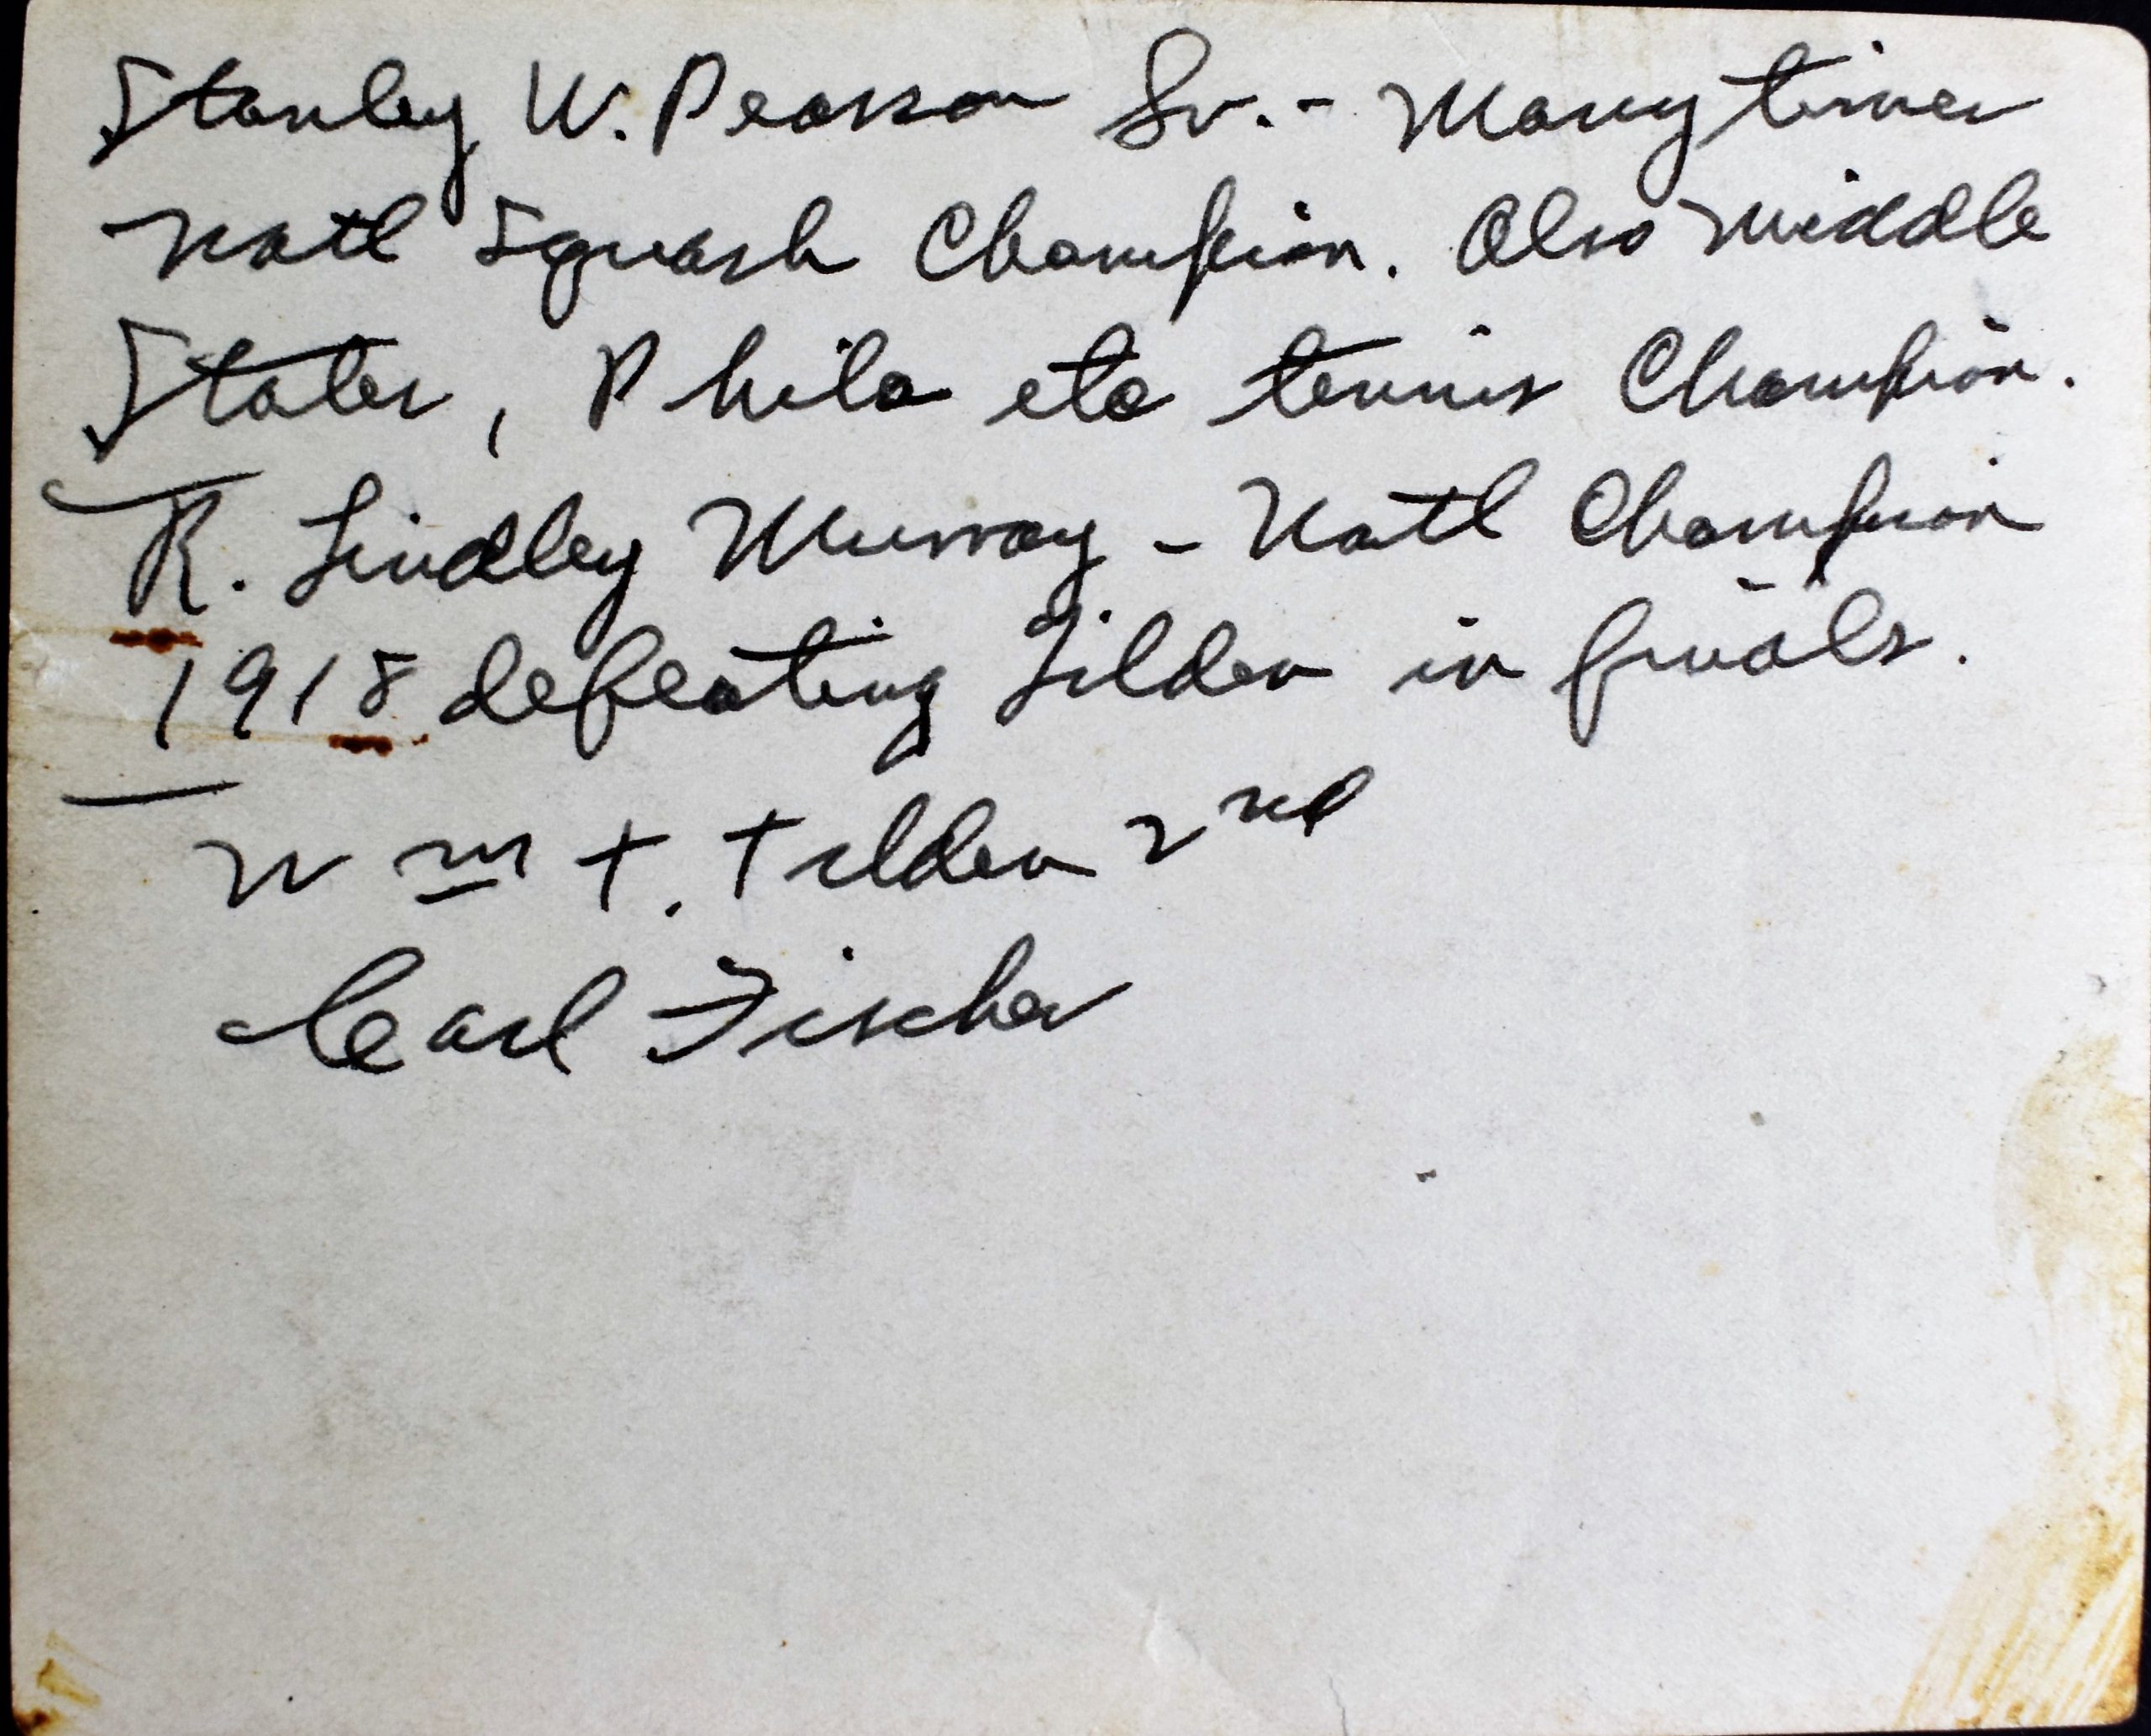 Stanley W. Pearson Sr. - Many times
Natl Squash Champion. Also Middle
States, Phila etc tennis Champion.
R. Lindley Murray - Natl Champion
1918 defeating Tilden in finals.
Wm T. Tilden 2nd
Carl Fischer